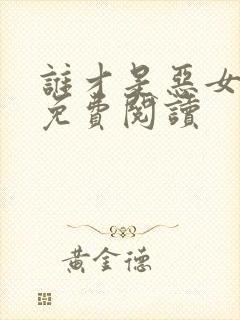 誰才是惡女
免費閱讀
黃金德